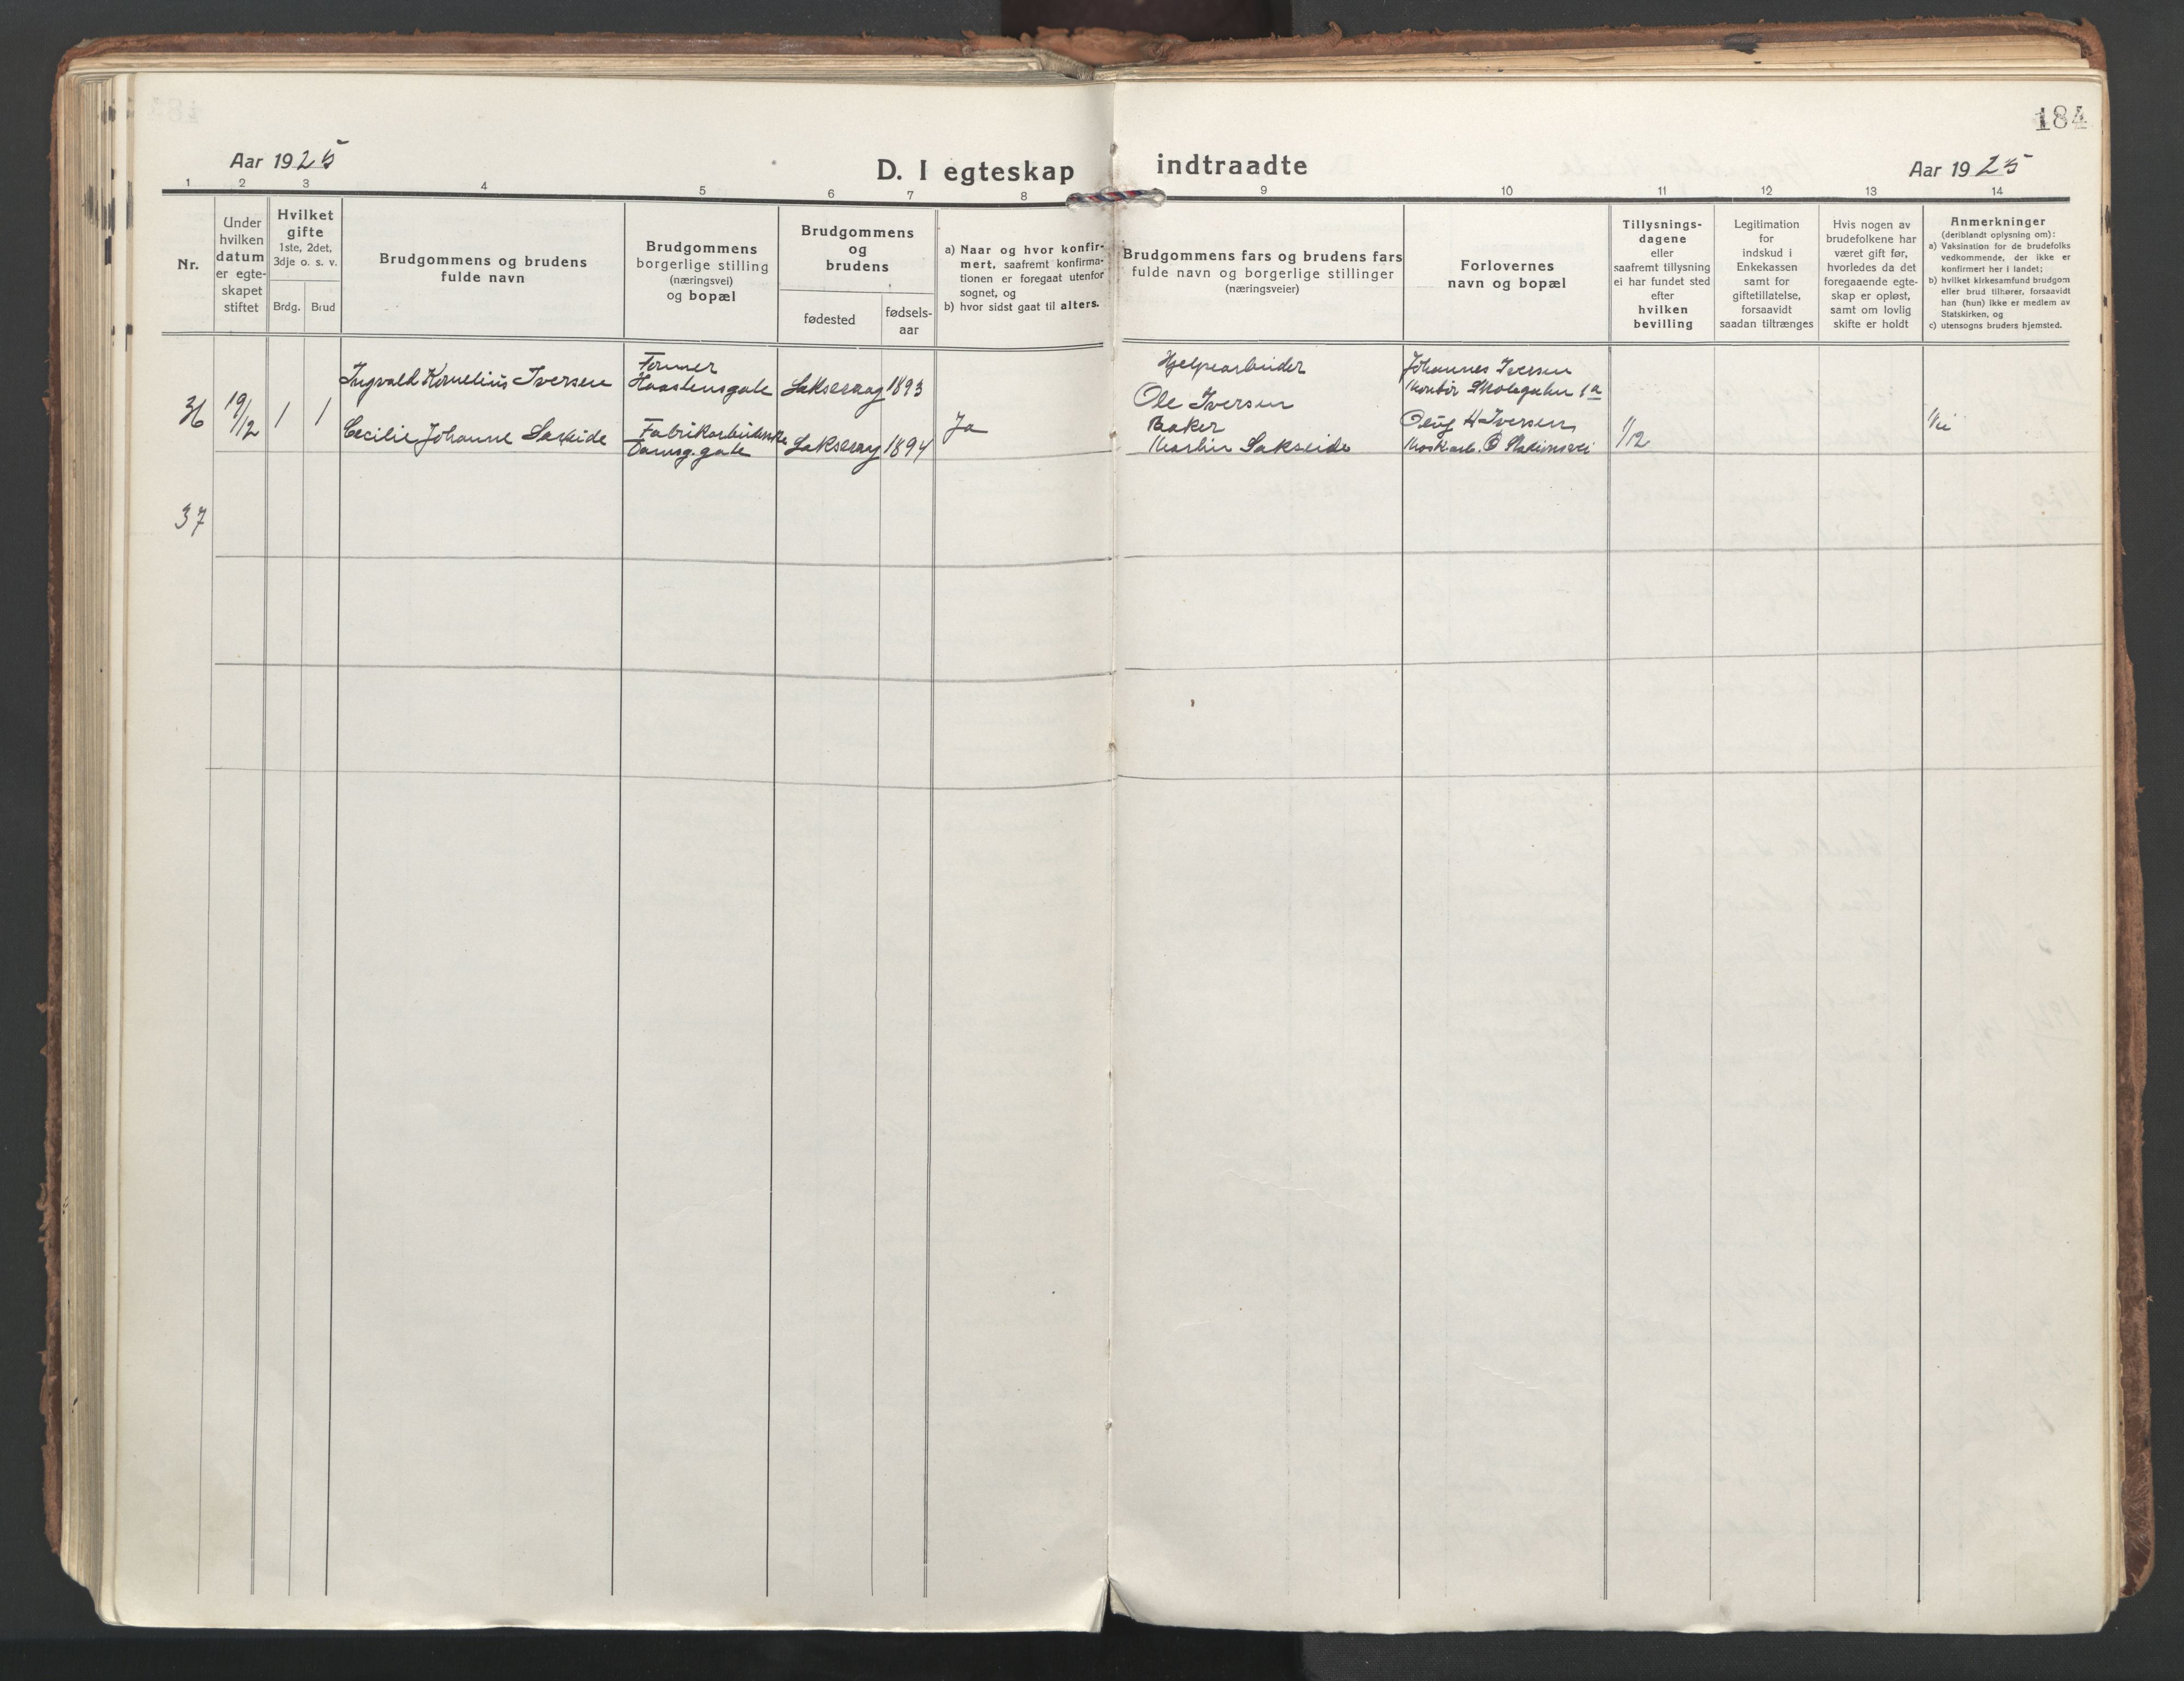 184
Aar 1925
D. I egteskap indtraadte
Aar 1925
1 2 3 4 5 6 7 8 9 10 11 12 13 14
Nr.
Under
hvilken
datum
er egte-
skapet
stiftet
Hvilket
gifte
1ste, 2det,
3dje o. s. v.
Brdg. Brud
Brudgommens og brudens
fulde navn
Brudgommens
borgerlige stilling
(næringsvei)
og bopæl
Brudgommens
og
brudens
fødested
fødsels-
aar
a) Naar og hvor konfir-
mert, saafremt konfirma-
tionen er foregaat utenfor
sognet, og
b) hvor sidst gaat til alters.
Brudgommens fars og brudens fars
fulde navn og borgerlige stillinger
(næringsveier)
Forlovernes
navn og bopæl
Tillysnings-
dagene
eller
saafremt tillysning
ei har fundet sted
efter
hvilken
bevilling
Legitimation
for
indskud i
Enkekassen
samt for
giftetillatelse,
forsaavidt
saadan tiltrænges
Hvis nogen av
brudefolkene har
været gift før,
hvorledes da det
foregaaende egte-
skap er opløst,
samt om lovlig
skifte er holdt
Anmerkninger
(deriblandt oplysning om):
a) Vaksination for de brudefolks
vedkommende, der ikke er
konfirmert her i landet;
b) hvilket kirkesamfund brudgom
eller brud tilhører, forsaavidt
han (hun) ikke er medlem av
Statskirken, og
c) utensogns bruders hjemsted.
36
19/2
1 1
Ingvald Kornelius Iversen
Cecilie Johanne Sakseide
Former
Haastensgate
Fabrikarbeiderske
Damsg. gate
1893
1894
Ja
Hjelpearbeider
Ole Iversen
Baker
Martin Sakseide
Johannes Iversen
Kontor Skolegaten 1a
H Iversen
Stationsvei
1/2
37